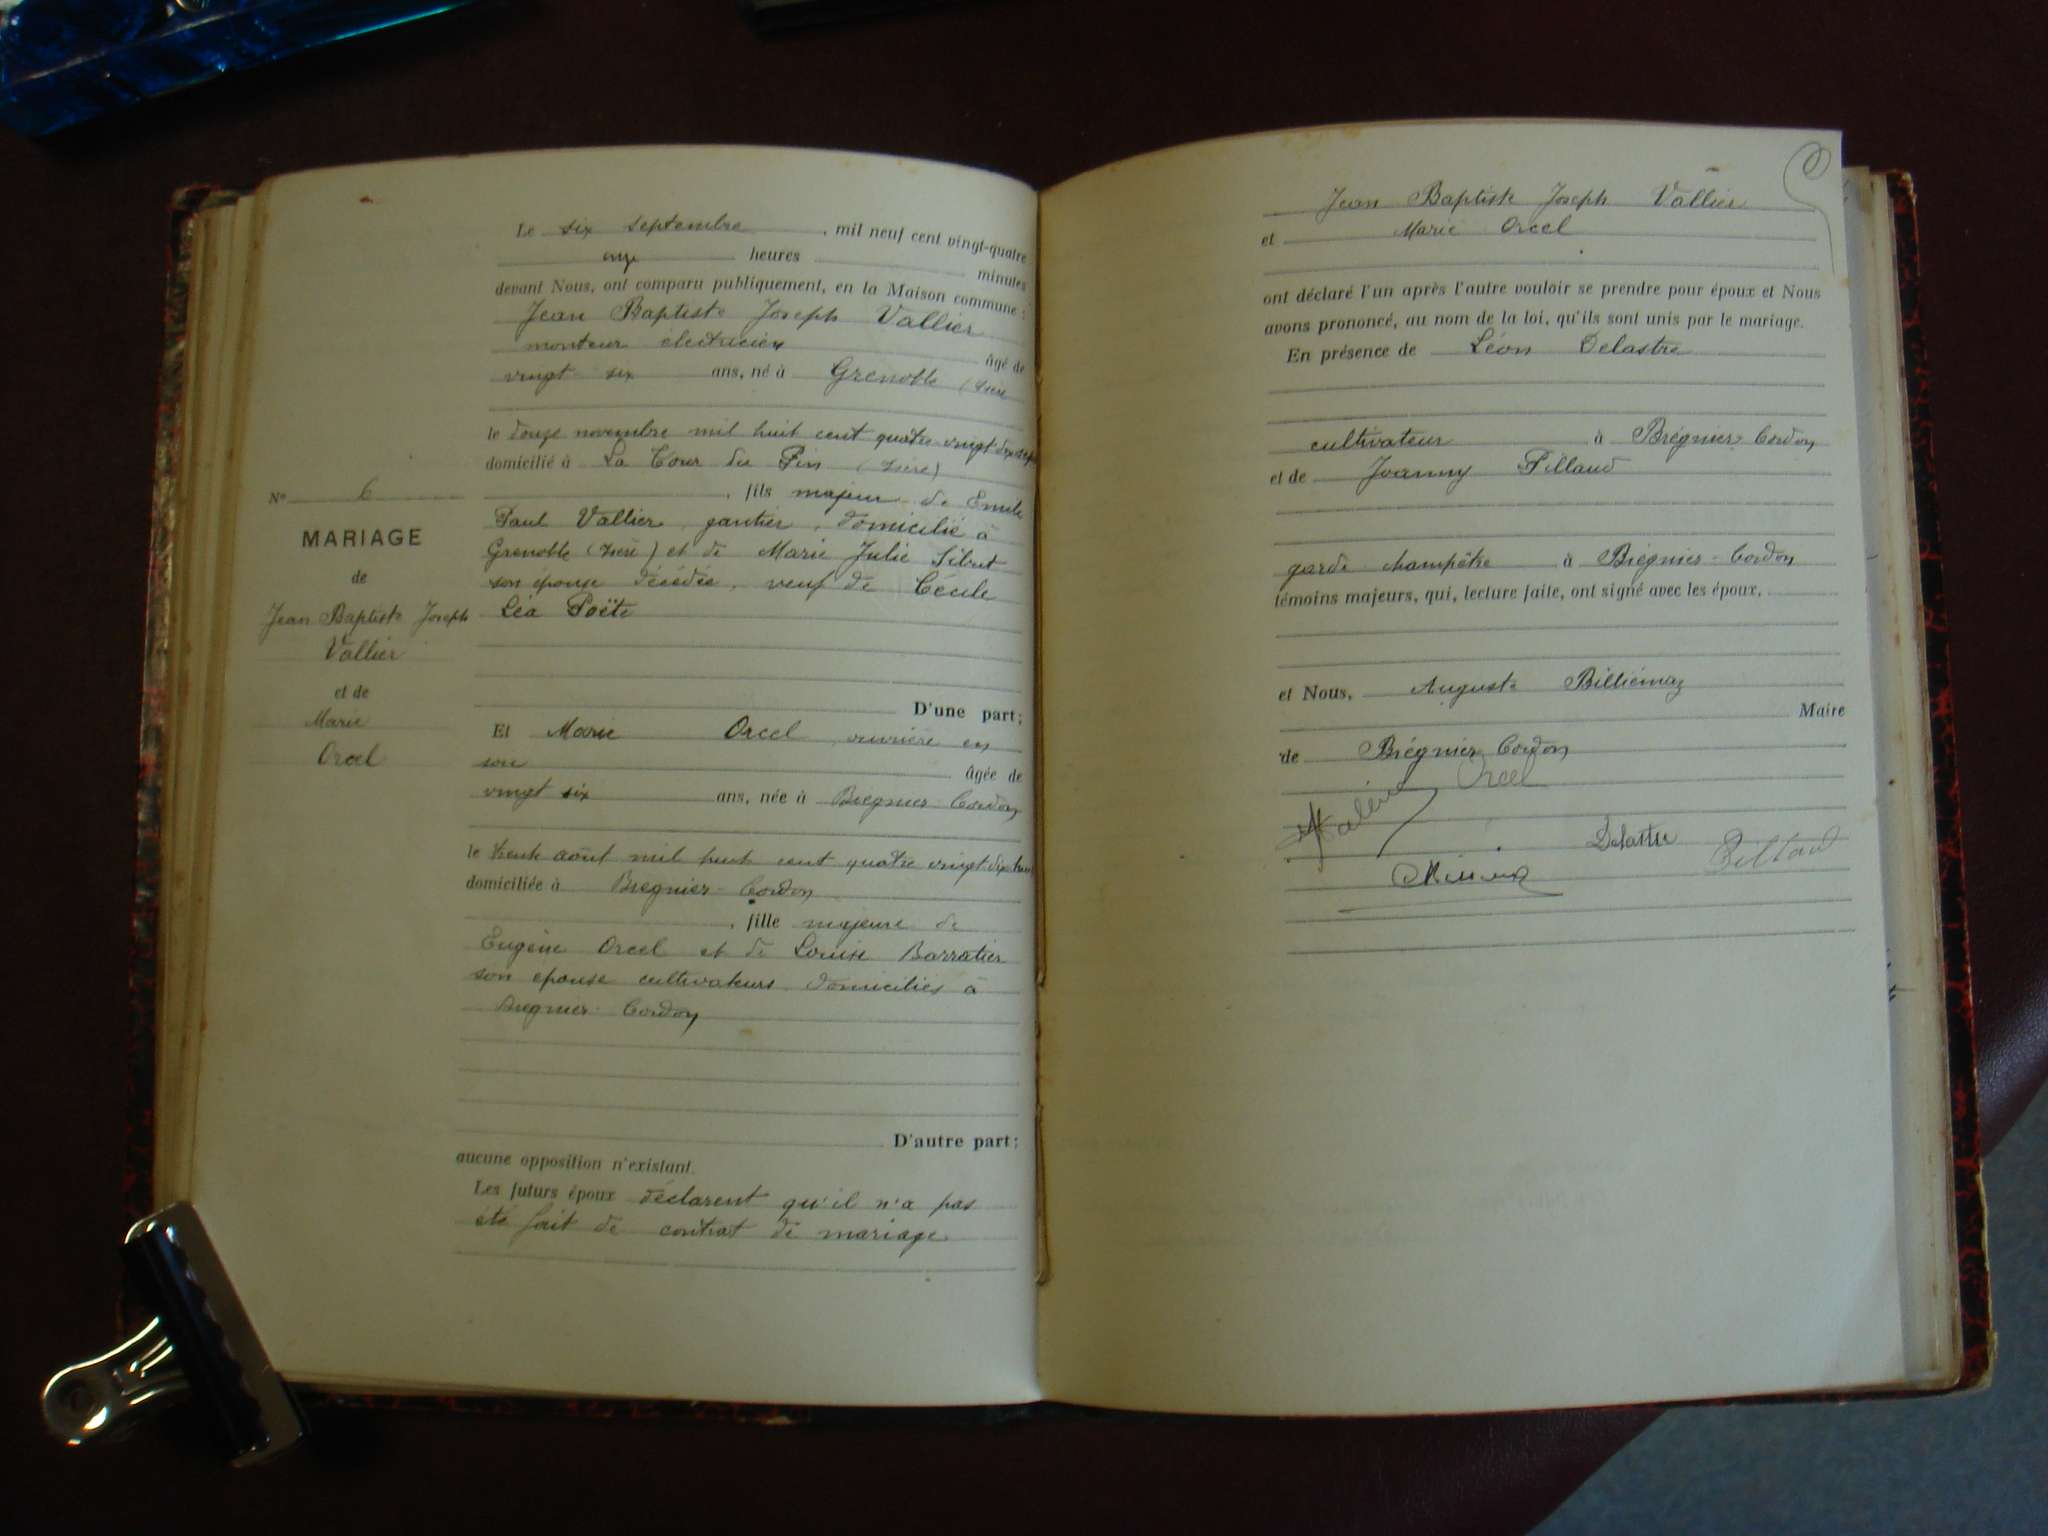 Le six septembre, mil neuf cent vingt-quatre
onze heures minutes
devant Nous, ont comparu publiquement, en la Maison commune :
Jean Baptiste Joseph Vallier
monteur électricien âgé de
vingt six ans, né à Grenoble (Isère
le douze novembre mil huit cent quatre-vingt dix sept
domicilié à La Tour du Pin (Isère)
, fils majeur de Emile
Paul Vallier, gantier, domicilié à
Grenoble (Isère) et de Marie Julie Sibut
son épouse décédée, veuf de Cécile
Léa Poëte
D'une part;
Et Marie Orcel, ouvrière en
soie âgée de
vingt six ans, née à Brégnier-Cordon
le trente août mil huit cent quatre vingt-dix-huit
domiciliée à Brégnier-Cordon
, fille majeure de
Eugène Orcel et de Louise Barratier
son épouse cultivateurs, domiciliés à
Brégnier-Cordon
D'autre part;
aucune opposition n'existant.
Les futurs époux déclarent qu'il n'a pas
été fait de contrat de mariage
N° 6
MARIAGE
de
Jean Baptiste Joseph
Vallier
et de
Marie
Orcel
Jean Baptiste Joseph Vallier
et Marie Orcel
ont déclaré l'un après l'autre vouloir se prendre pour époux et Nous
avons prononcé, au nom de la loi, qu'ils sont unis par le mariage.
En présence de Léon Delastre
cultivateur à Brégnier-Cordon
et de Joanny Pillaud
garde champêtre à Brégnier-Cordon
témoins majeurs, qui, lecture faite, ont signé avec les époux,
et Nous, Auguste Billiémaz
Maire
de Brégnier-Cordon
Orcel
Delastre